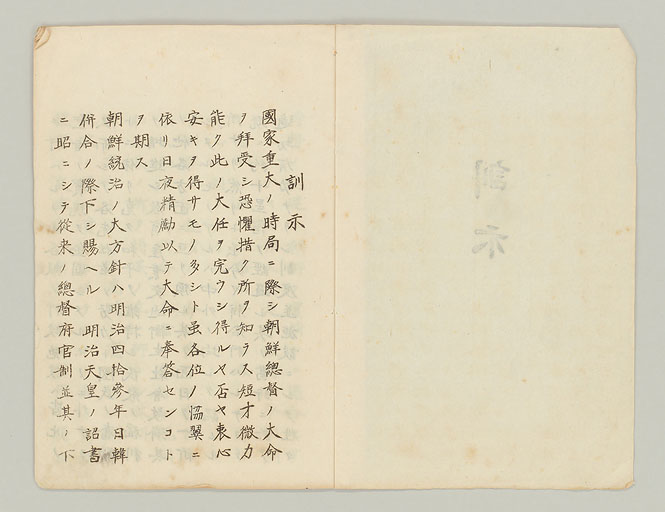 訓示
國家重大ノ時局ニ際シ朝鮮總督ノ大命
ヲ拜受シ恐懼措ク所ヲ知ラス短才微力
能ク此ノ大任ヲ完ウシ得ルヤ否ヤ衷心
安キヲ得サモノ多シト虽各位ノ恊翼ニ
依リ日夜精励以テ大命ニ奉答センコト
ヲ期ス
朝鮮統治ノ大方針ハ明治四拾參年日韓
併合ノ際下シ賜ヘル 明治天皇ノ詔書
ニ昭ニシテ從来ノ總督府官制並其ノ下